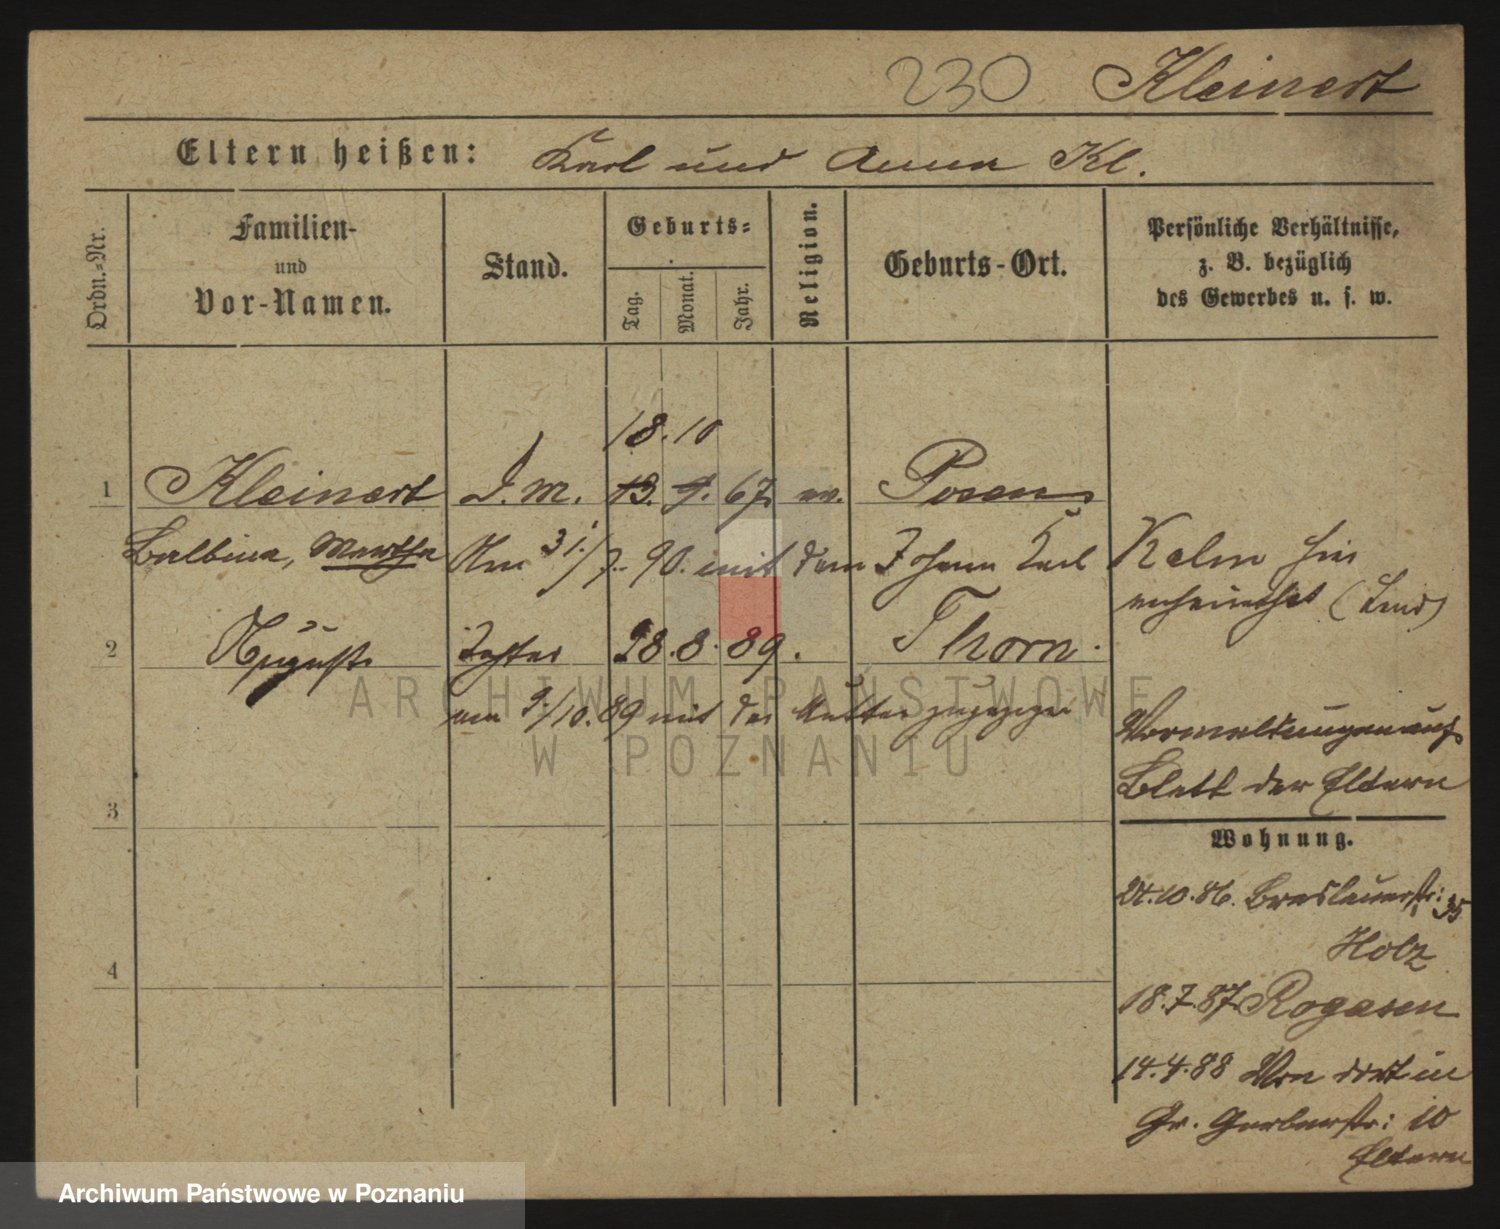 230 Kleinert
Eltern heißen: Karl und Anna Kl.
Ordn.-Nr.
Familien-
und
Vor-Namen.
Stand.
Geburts-
Tag.
Monat.
Jahr.
Religion.
Geburts-Ort.
Persönliche Verhältnisse,
z. B. bezüglich
des Gewerbes u. s. w.
18. 10
1 Kleinert D. M. 13. 9. 67 ev. Posen
Balbina, Martha Am 31./7. 90. mit dem Johann Karl Kalm hier
verheirathet
2 Auguste Tochter 28. 8. 89. Thorn.
am 9./10. 89 mit der Mutter zugezogen
Vermerkungen auf
Blatt der Eltern
3
Wohnung.
24.10.86. Breslauerstr: 35
Holz
4
18.7.87. Rogasen
14.4.88 Von dort in
Gr. Gerberstr: 10
Eltern
ARCHIWUM PAŃSTWOWE
W POZNANIU
Archiwum Państwowe w Poznaniu